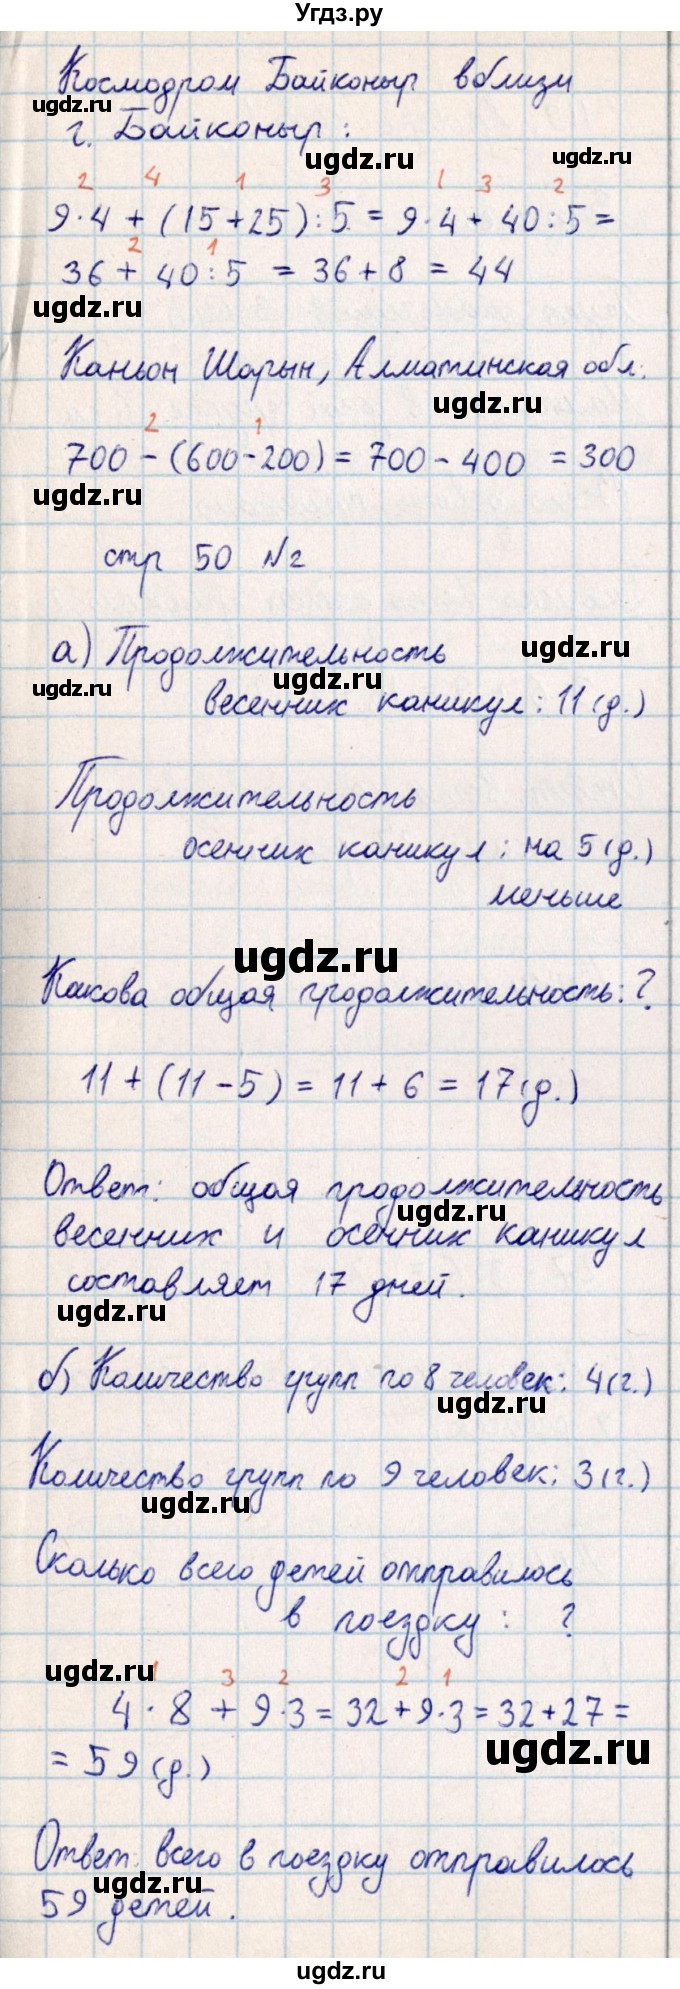 Угдз.ру
Космодром Байконыр вблизи
ugdz.ru
г. Байконыр:
ugdz.ru
ugdz.ru
2 4 1 3 1 3 2
9·4 + (15+25):5 = 9·4 + 40:5 =
2 1
36 + 40:5 = 36 + 8 = 44
ugdz.ru
Каньон Шарын, Алматинская обл.
ugdz.ru
2 1
700 - (600-200) = 700 - 400 = 300
ugdz.ru
стр 50 №2
а) Продолжительность
ugdz.ru
ugdz.ru
ugdz.ru
весенних каникул: 11 (д.)
Продолжительность
осенних каникул: на 5 (д.)
меньше
ugdz.ru
Какова общая продолжительность: ?
11 + (11 - 5) = 11 + 6 = 17 (д.)
Ответ: общая продолжительность
ugdz.ru
весенних и осенних каникул
составляет 17 дней.
ugdz.ru
б) Количество групп по 8 человек: 4 (г.)
ugdz.ru
Количество групп по 9 человек: 3 (г.)
ugdz.ru
Сколько всего детей отправилось
в поездку: ?
ugdz.ru
1 3 2 2 1
4 · 8 + 9·3 = 32 + 9·3 = 32 + 27 =
ugdz.ru
= 59 (д.)
Ответ: всего в поездку отправилось
ugdz.ru
59 детей.
ugdz.ru